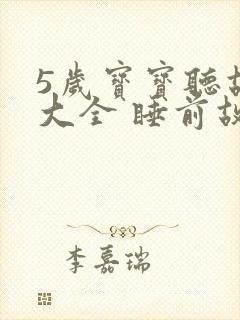 5歲寶寶聽故
大全 睡前故
李嘉瑞